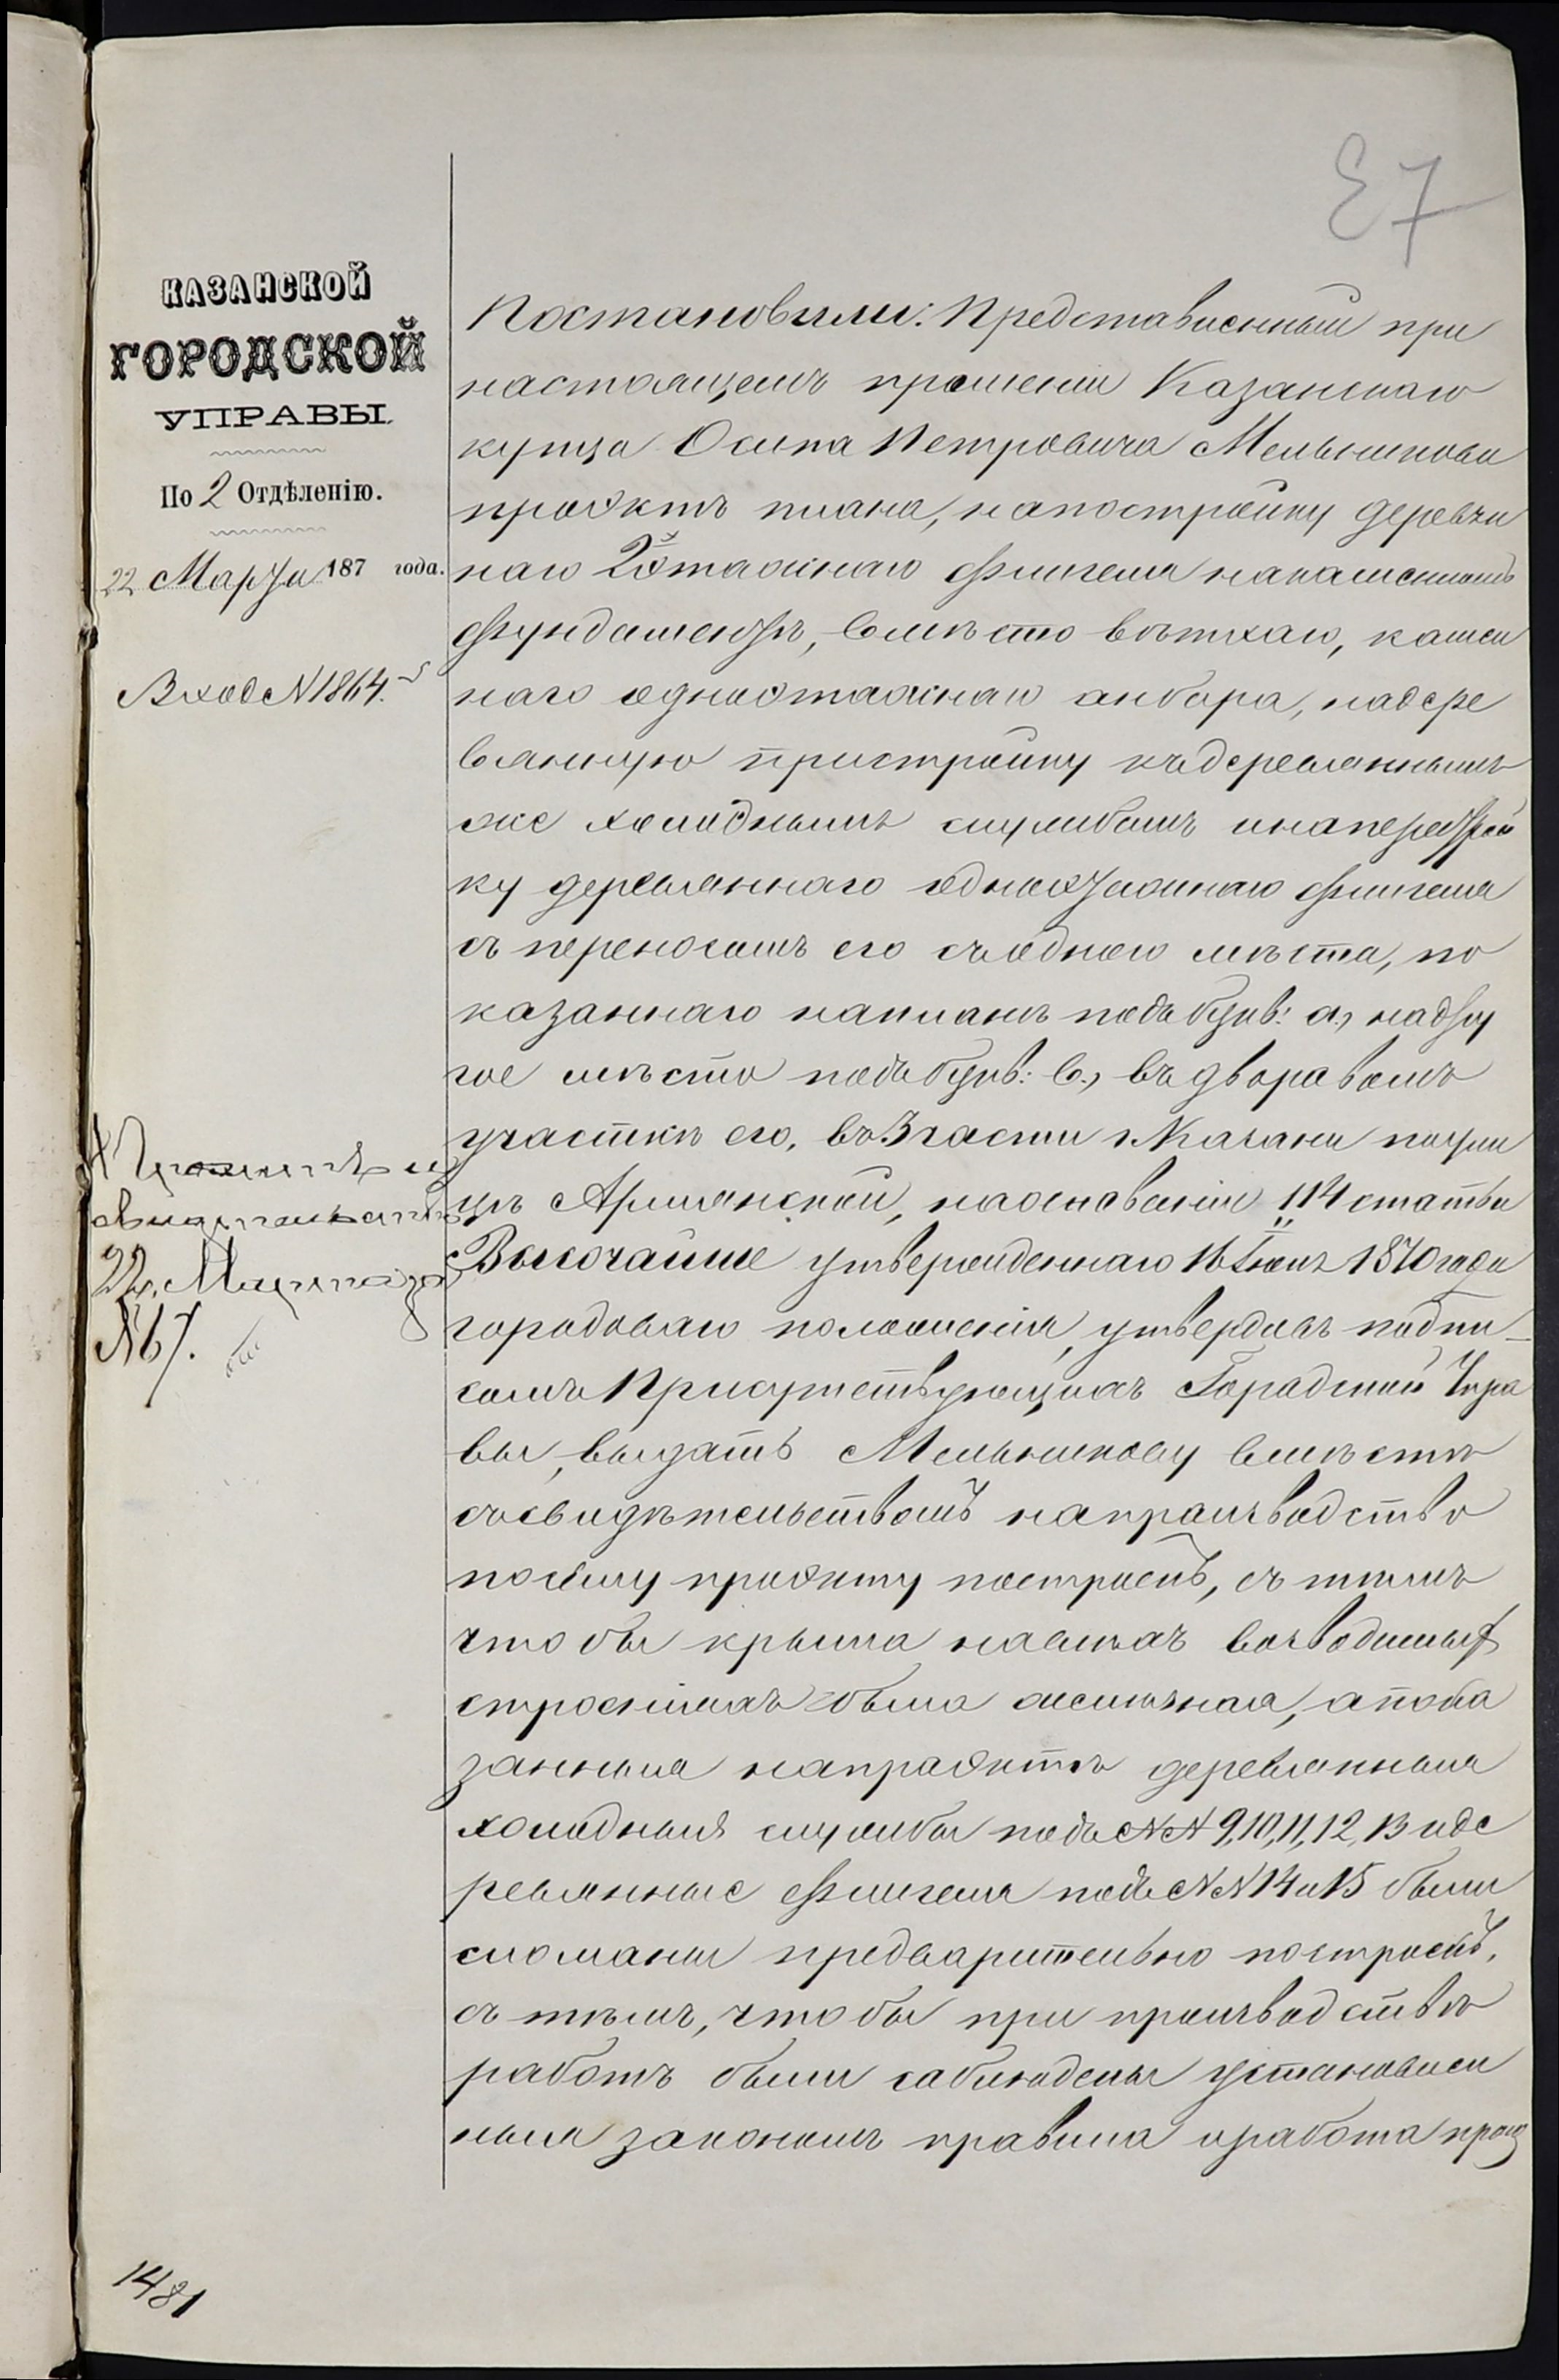 87
КАЗАНСКОЙ
ГОРОДСКОЙ
УПРАВЫ
По 2 Отдѣленію.
22 Марта 187 года.
Вход N 1864.
свидѣтельство
22 Марта за
N 67.
Постановили: Представленный при
настоящемъ прошеніи Казанскаго
купца Осипа Петровича Мельникова
проэктъ плана, на постройку деревян
наго 2хэтажнаго флигеля на каменномъ
фундаментѣ, вмѣсто ветхаго, камен
наго одноэтажнаго анбара, на дере
вянную пристройку къ деревяннымъ
же холоднымъ службамъ и на перестрой
ку деревяннаго одноэтажнаго флигеля
съ переносомъ его съ однаго мѣста, по
казаннаго на планѣ подъ букв: а, на дру
гое мѣсто подъ букв: в., въ дворовомъ
участкѣ его, въ 3 части г. Казани по ули
цѣ Армянской, на основаніи 114 статьи
Высочайше утвержденнаго 16 Іюня 1870 года
городоваго положенія, утвердивъ подпи-
сомъ Присутствующихъ Городской Упра
вы, выдать Мельникову вмѣстѣ
съ свидѣтельствомъ на производство
по сему проэкту построекъ, съ тѣмъ
что бы крыша на всѣхъ возводимыхъ
строеніяхъ была желѣзная, а пока
занныя на проэктѣ деревянныя
холодныя службы подъ NN 9, 10, 11, 12, 13 и де
ревянные флигеля подъ NN 14 и 15 были
сломаны предварительно построекъ,
съ тѣмъ, что бы при производствѣ
работъ были соблюдены установлен
ныя закономъ правила и работа произ
1481